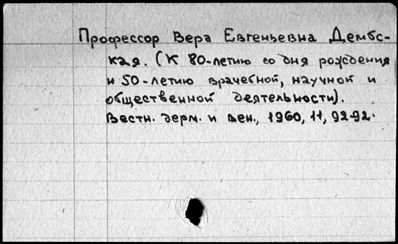 Профессор Вера Евгеньевна Дембс-
кая. (К 80-летию со дня рождения
и 50-летию врачебной, научной и
общественной деятельности).
Вестн. дерм. и вен., 1960, 11, 92-92.